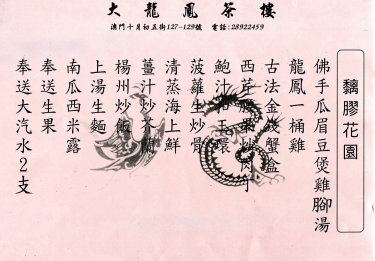 大龍鳳茶樓
澳門十月初五街127-129號 電話:28922459
麒膠花園
佛手瓜眉豆煲雞腳湯
龍鳳一桶雞
古法金錢蟹盒
西芹腰果炒肉丁
鮑汁扣玉環
菠蘿生炒骨
清蒸海上鮮
薑汁炒芥蘭
楊州炒飯
上湯生麵
南瓜西米露
奉送生果
奉送大汽水2支